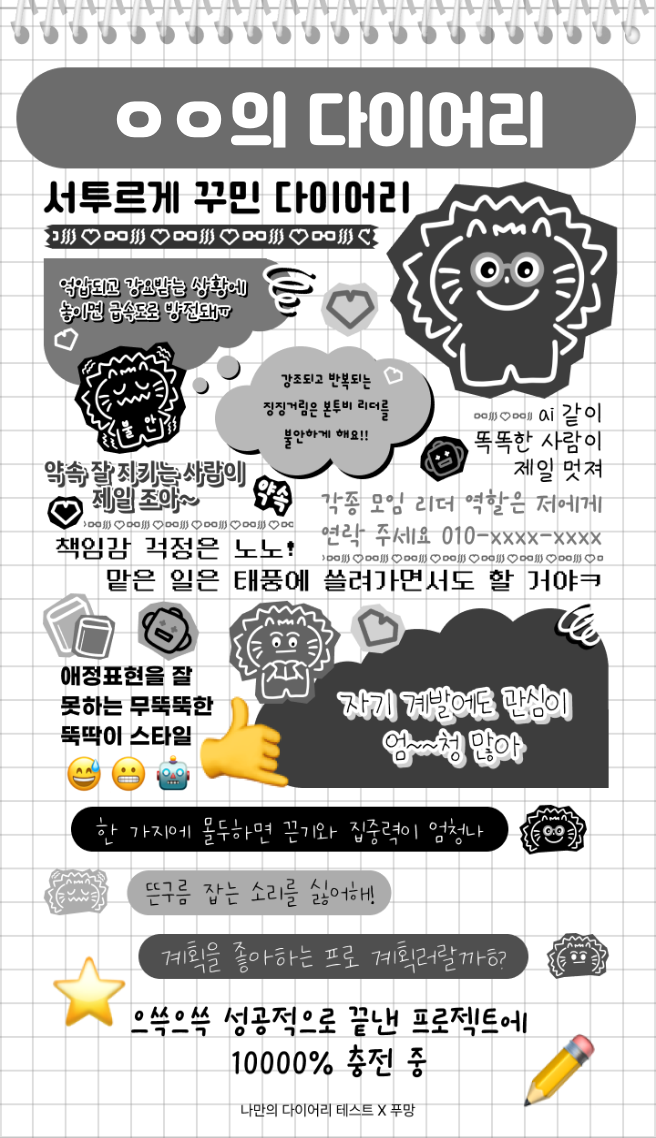 ㅇㅇ의 다이어리
서투르게 꾸민 다이어리
억압되고 강요받는 상황에
놓이면 급속도로 방전돼ㅠ
불안
강조되고 반복되는
징징거림은 본투비 리더를
불안하게 해요!!
ai 같이
똑똑한 사람이
제일 멋져
약속 잘 지키는 사람이
제일 조아~
약속
각종 모임 리더 역할은 저에게
연락 주세요 010-xxxx-xxxx
책임감 걱정은 노노!
맡은 일은 태풍에 쓸려가면서도 할 거야ㅋ
애정표현을 잘
못하는 무뚝뚝한
뚝딱이 스타일
자기 계발에도 관심이
엄~~청 많아
한 가지에 몰두하면 끈기와 집중력이 엄청나
뜬구름 잡는 소리를 싫어해!
계획을 좋아하는 프로 계획러랄까☆?
으쓱으쓱 성공적으로 끝낸 프로젝트에
10000% 충전 중
나만의 다이어리 테스트 X 푸망